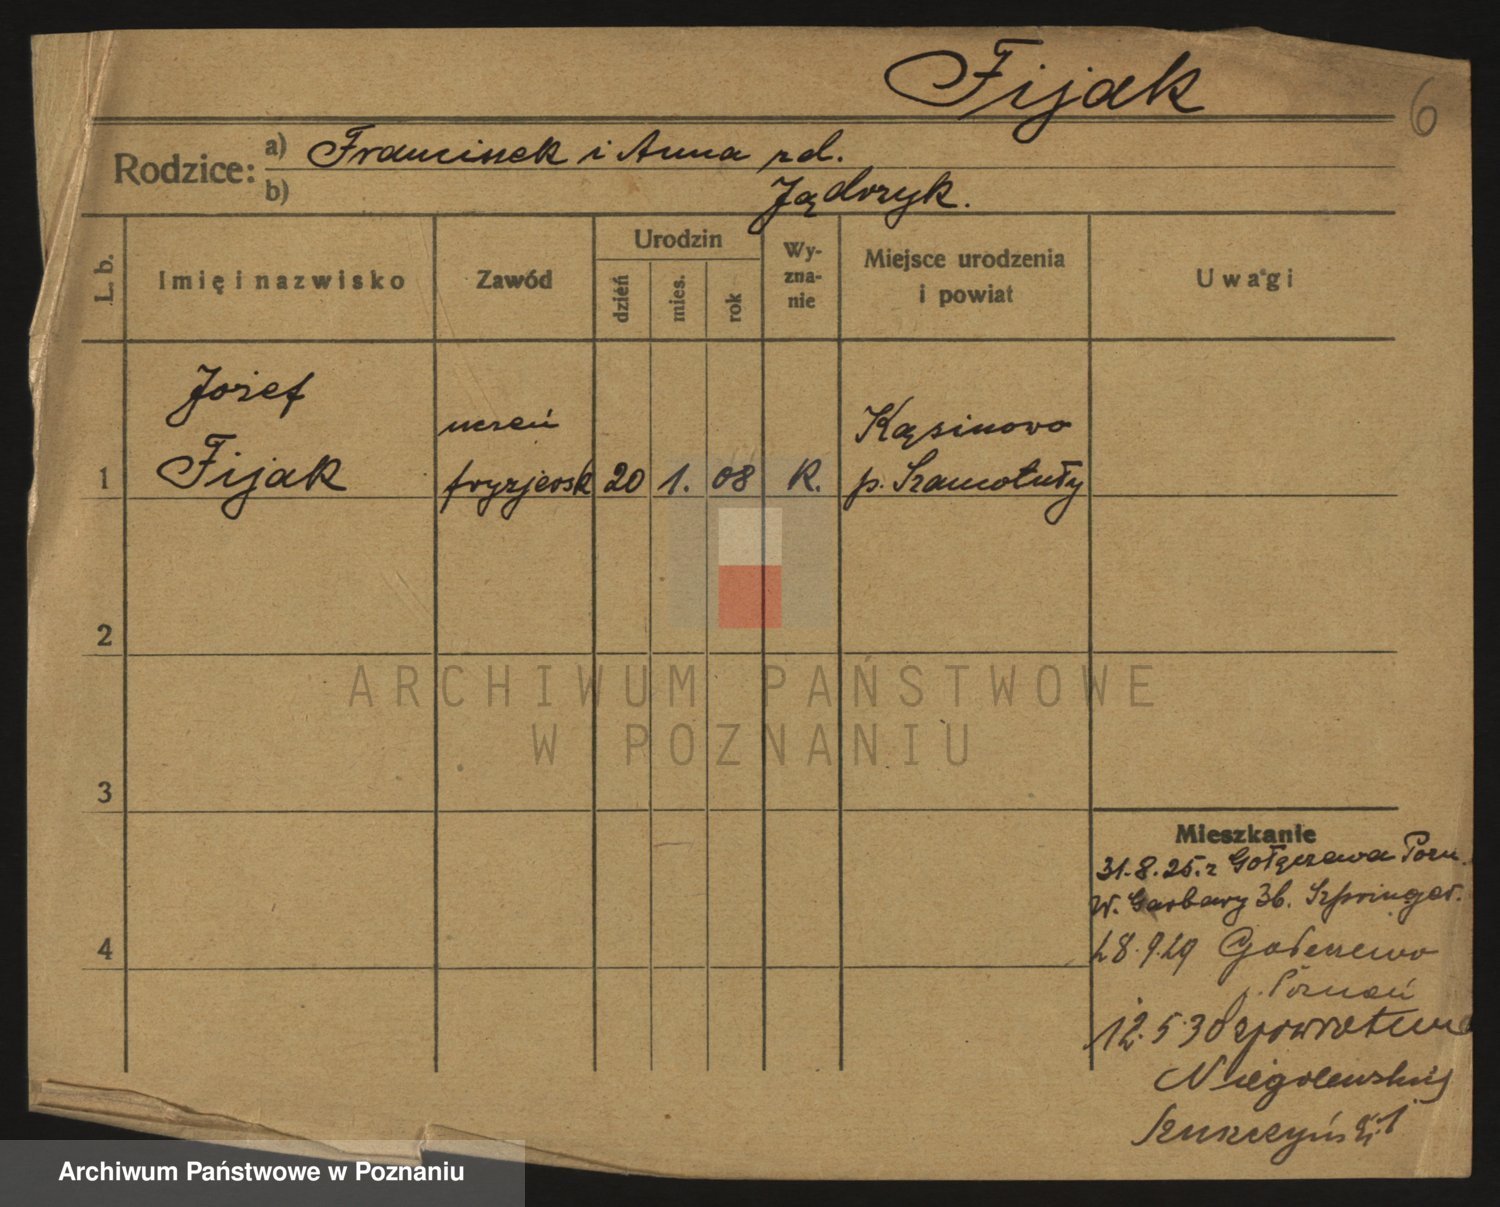 Fijak
6
Rodzice:
a) Franciszek i Anna zd.
b) Jądrzyk.
L. b.
Imię i nazwisko
Zawód
Urodzin
dzień
mies.
rok
Wy-
zna-
nie
Miejsce urodzenia
i powiat
Uwagi
Józef
Fijak
uczeń
fryzjersk
1
20
1.
08
K.
Kąsinowo
p. Szamotuły
2
3
4
Mieszkanie
31.8.25. z Pozn.
W. Garbary 36. Szpringer.
28.9.29
p. Poznań
12.5.30 spowrotem
Niegolewskich
ARCHIWUM PAŃSTWOWE
W POZNANIU
Archiwum Państwowe w Poznaniu